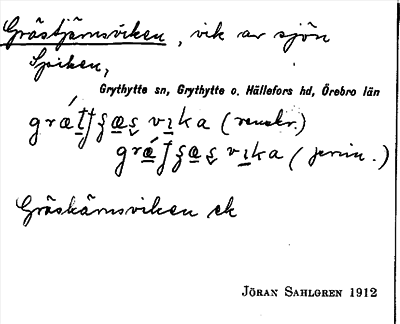 Gråstjärnsviken, vik av sjön
Spiken,
Grythytte sn, Grythytte o. Hällefors hd, Örebro län
vika (renskr.)
vika
Gråskärnsviken ek
JÖRAN SAHLGREN 1912